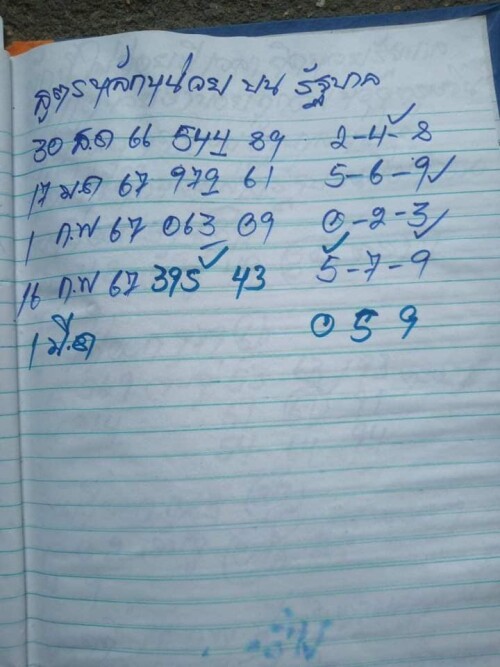 สูตรหลักหน่วย บน รัฐบาล
30 ธ.ค 66 544 89 2-4-8
17 ม.ค 67 979 61 5-6-9
1 ก.พ 67 063 09 0-2-3
16 ก.พ 67 395 43 5-7-9
1 มี.ค 0 5 9